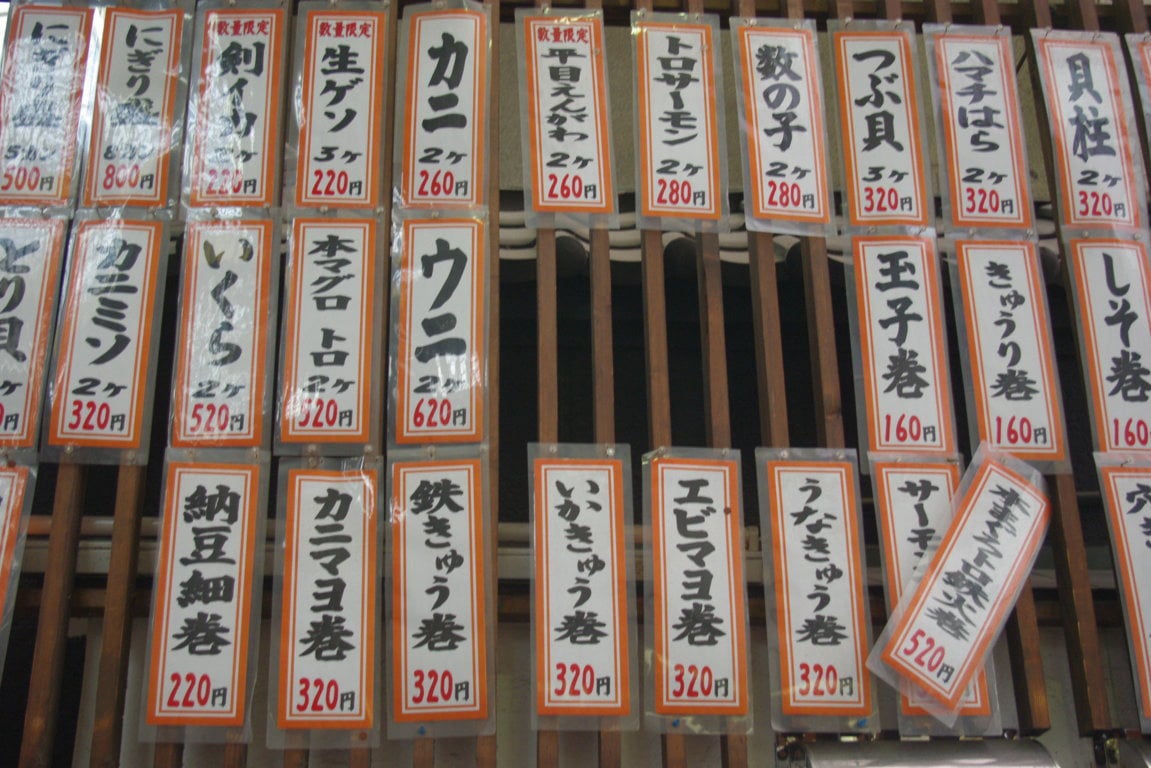 にぎり
500円
にぎり
800円
数量限定
剣イカ
220円
数量限定
生ゲソ
3ヶ
220円
カニ
2ヶ
260円
数量限定
平目えんがわ
2ヶ
260円
トロサーモン
2ヶ
280円
数の子
2ヶ
280円
つぶ貝
3ヶ
320円
ハマチはら
2ヶ
320円
貝柱
2ヶ
320円
とり貝
カニミソ
2ヶ
320円
いくら
2ヶ
520円
本マグロ トロ
2ヶ
520円
ウニ
2ヶ
620円
玉子巻
160円
きゅうり巻
160円
しそ巻
160
納豆細巻
220円
カニマヨ巻
320円
鉄きゅう巻
320円
いかきゅう巻
320円
エビマヨ巻
320円
うなきゅう巻
320円
サーモ
本まぐろトロ鉄火巻
520円
穴き